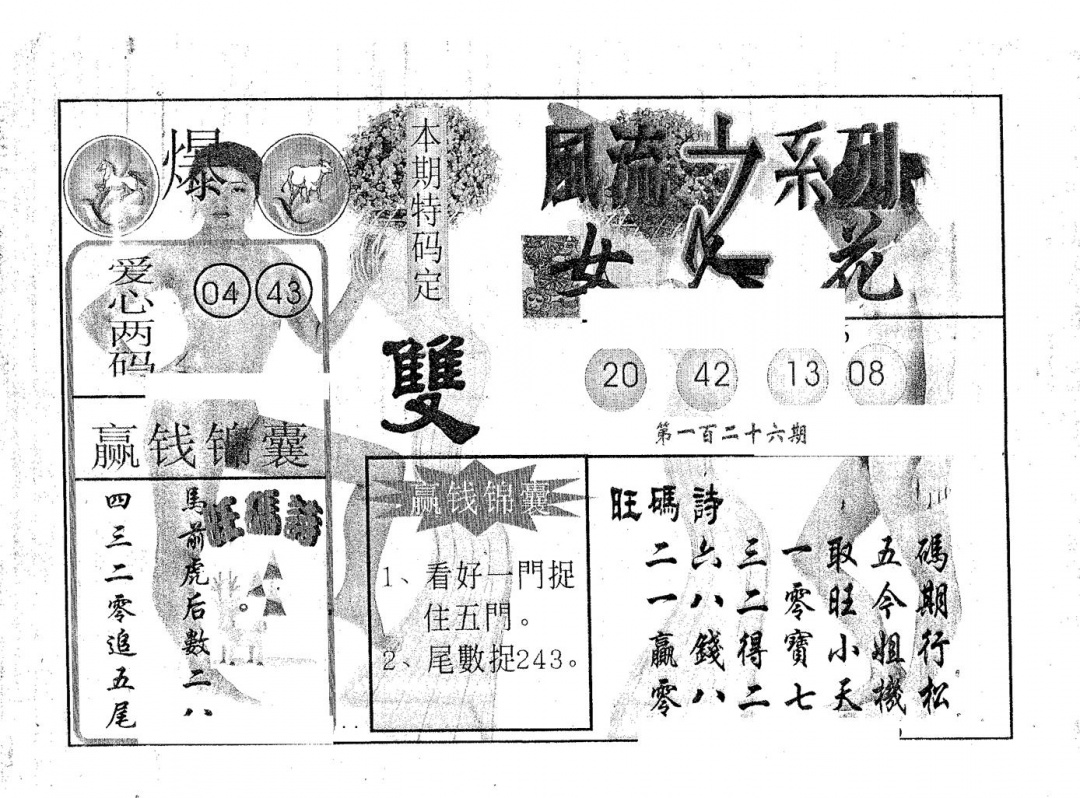 爆
本期特码定
雙
風流之系列
女人花
爱心两码
04 43
20 42 13 08
第一百二十六期
赢钱锦囊
旺碼詩
馬前虎后數二八
四三二零追五尾
赢钱锦囊
1、看好一門捉
住五門。
2、尾數捉243。
旺碼詩
碼期行松
五今姐機
取旺小天
一零寶七
三二得二
六八錢八
二一贏零